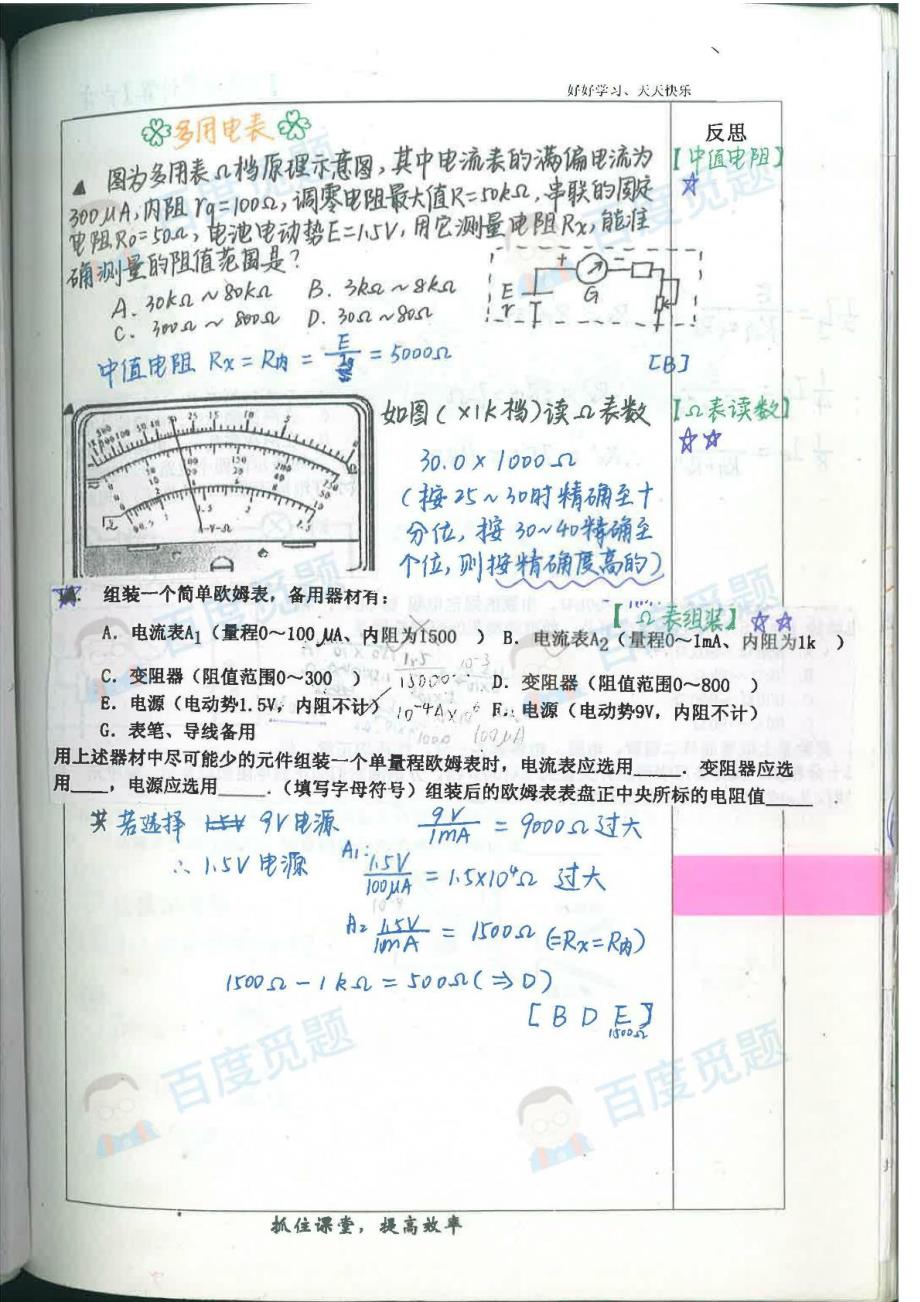 好好学习、天天快乐
多用电表
反思
▲ 图为多用表Ω档原理示意图,其中电流表的满偏电流为
【中值电阻】
300μA,内阻rg=100Ω,调零电阻最大值R=50kΩ,串联的固定
电阻R0=50Ω,电池电动势E=1.5V,用它测量电阻Rx,能准
确测量的阻值范围是?
A. 30kΩ~80kΩ B. 3kΩ~8kΩ
C. 300Ω~800Ω D. 30Ω~80Ω
E
r
+
-
G
中值电阻 Rx=R内= = 5000Ω
[B]
如图(×1K档)读Ω表数
【Ω表读数】
30.0×1000Ω
(按25~30时精确至十
分位,按30~40精确至
个位,则按精确度高的)
A-V-Ω
组装一个简单欧姆表,备用器材有:
【Ω表组装】
A. 电流表A1(量程0~100μA、内阻为1500 ) B. 电流表A2(量程0~1mA、内阻为1k )
C. 变阻器(阻值范围0~300 ) D. 变阻器(阻值范围0~800 )
E. 电源(电动势1.5V,内阻不计) F. 电源(电动势9V,内阻不计)
G. 表笔、导线备用
用上述器材中尽可能少的元件组装一个单量程欧姆表时,电流表应选用_____. 变阻器应选
用____,电源应选用_____.(填写字母符号)组装后的欧姆表表盘正中央所标的电阻值_____.
若选择 9V电源 9V/1mA = 9000Ω过大
∴ 1.5V电源 A1: 1.5V/100μA = 1.5×10⁴Ω 过大
A2 1.5V/1mA = 1500Ω (=Rx=R内)
1500Ω-1kΩ=500Ω(⇒D)
[B D E]
1500Ω
百度觅题
百度觅题
百度觅题
百度觅题
百度觅题
百度觅题
抓住课堂,提高效率